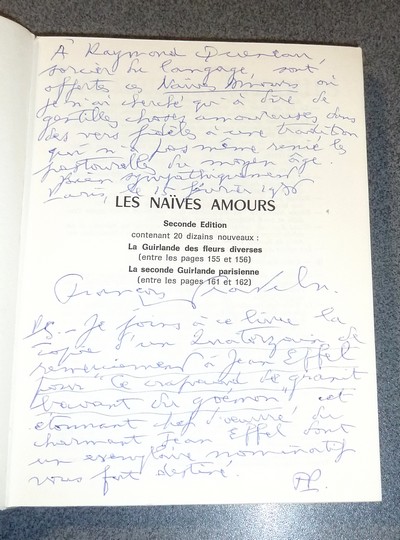 À Raymond Queneau,
sorcier du langage, sont
offertes ces Naïves Amours où
je n'ai cherché qu'à dire de
gentilles choses amoureuses dans
des vers fidèles à une tradition
qui n'a pas même renié les
pastourelles du moyen âge.
Bien sympathiquement
Paris, le 15 février 1956
LES NAÏVES AMOURS
Seconde Edition
contenant 20 dizains nouveaux :
La Guirlande des fleurs diverses
(entre les pages 155 et 156)
La seconde Guirlande parisienne
(entre les pages 161 et 162)
François
PS. - Je joins à ce livre la
copie d'un Quatorzain de
remerciement à Jean Effel
pour "le crapaud de granit
bavant du goémon" cet
étonnant chef d'œuvre du
charmant Jean Effel dont
un exemplaire nominatif
vous fut destiné.